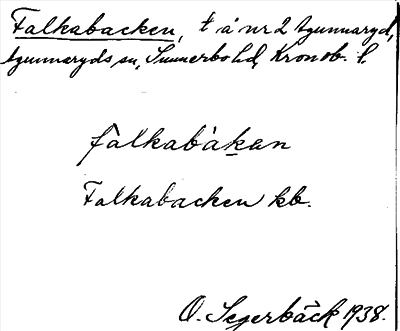 Falkabacken, t å nr 2 Agunnaryd,
Agunnaryds sn, Sunnerbo hd, Kronob. l.
falkabàkan
Falkabacken kb.
O. Segerbäck 1938.